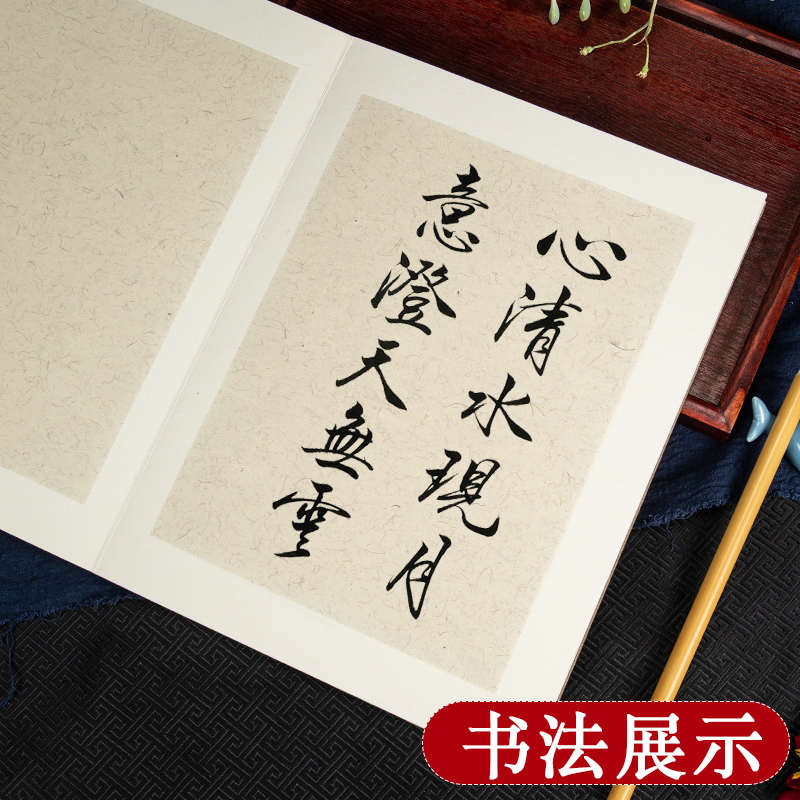 心清水現月
意澄天無雲
书法展示